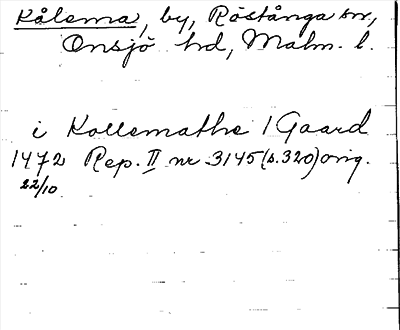 Kålema, by, Röstånga sn,
Onsjö hd, Malm. l.
i Kollemathe 1 Gaard
1472 Rep. II nr 3145 (s.320) orig.
22/10